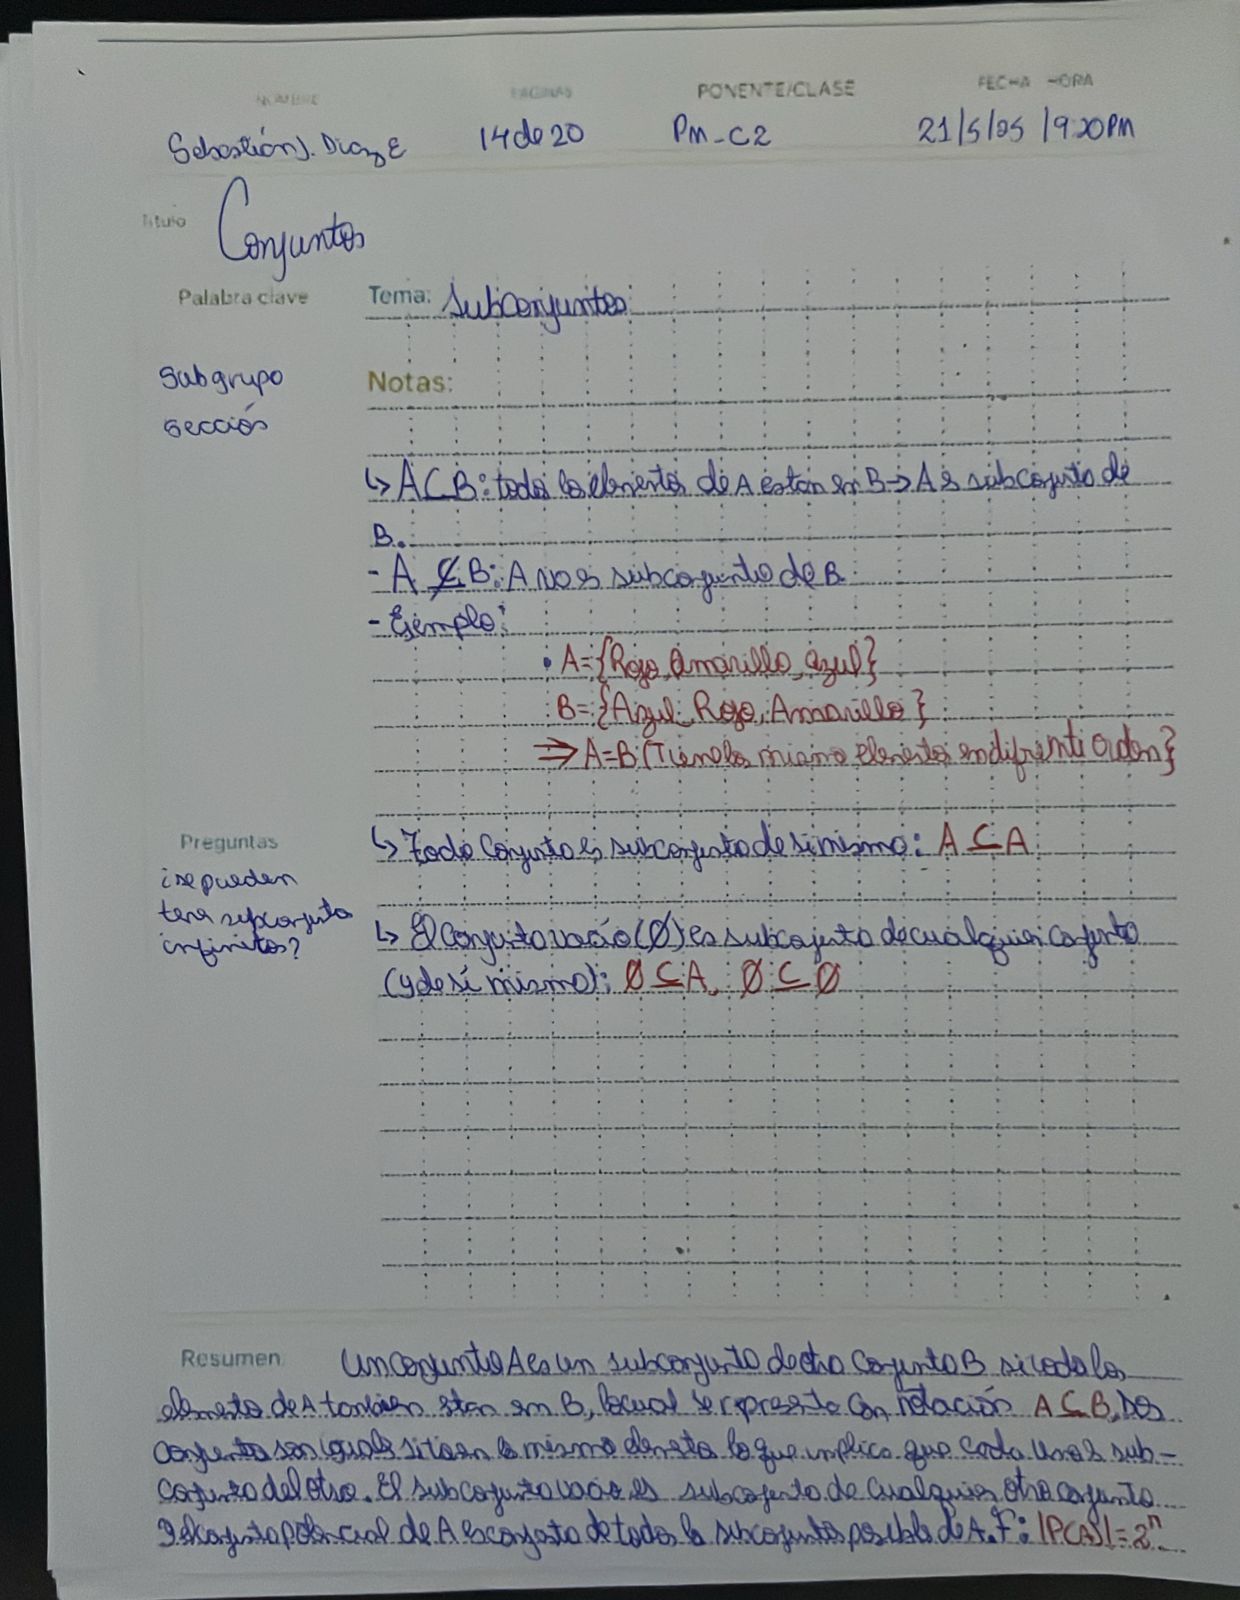 NOMBRE PAGINAS PONENTE/CLASE FECHA HORA
Sebastián J. Diaz E 14 de 20 PM-C2 21/5/25 /9:20PM
Titulo Conjuntos
Palabra clave Tema: Subconjuntos
Subgrupo Notas:
sección
↳ A⊂B: todos los elementos de A están en B → A es subconjunto de
B.
- A ⊄ B: A no es subconjunto de B
- Ejemplo:
• A={Rojo, Amarillo, azul}
B={Azul, Rojo, Amarillo}
⇒ A=B (Tienen los mismo elementos en difrente orden}
Preguntas ↳ Todo conjunto es subconjunto de si mismo: A ⊆ A
¿se pueden
tener subconjunto
infinitos?
↳ El conjunto vacío (∅) es subconjunto de cualquier conjunto
(y de sí mismo): ∅ ⊆ A, ∅ ⊆ ∅
Resumen Un conjunto A es un subconjunto de otro conjunto B si todo los
elemento de A tambien estan en B, lo cual se represente con notación A ⊆ B, Dos
conjunto son iguales si tienen lo mismo elemento lo que implica que cada uno es sub-
conjunto del otro. El subconjunto vacio es subconjunto de cualquier otro conjunto
Y el conjunto potencial de A es conjunto de todos lo subconjunto posible de A. F: |P(A)| = 2ⁿ